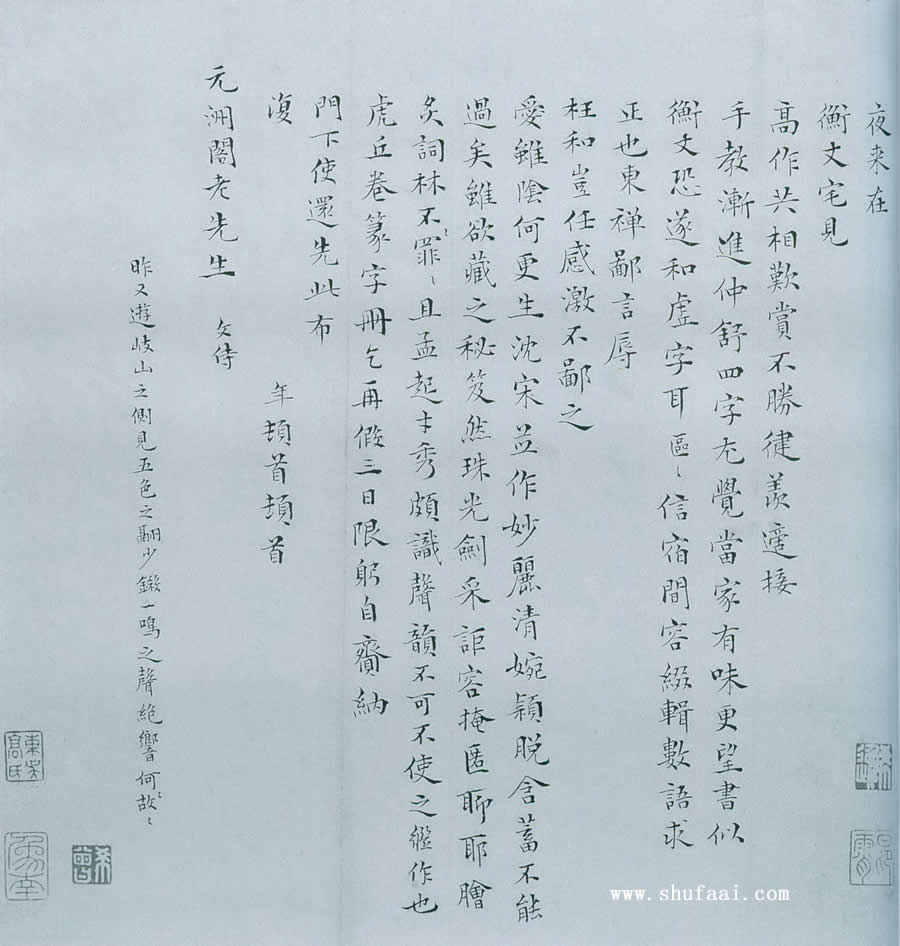 夜来在
衡丈宅見
高作共相歎賞不勝健羨適接
手教漸進仲舒四字尤覺當家有味更望書似
衡丈恐遂和虛字耳區〻信宿間容綴輯數語求
正也東禅鄙言辱
枉和豈任感激不鄙之
愛雖陰何更生沈宋並作妙麗清婉穎脱含蓄不能
過矣雖欲藏之秘笈然珠光劍采詎容掩匿聊耶膾
炙詞林不〻罪〻且孟起才秀頗識聲韻不可不使之繼作也
虎丘卷篆字冊乞再假三日限躬自齎納
門下使還先此布
復
年頓首頓首
元洲閣老先生 文侍
昨又遊岐山之側見五色之翮少鎩一鳴之聲絶響何〻故〻
東吳
高氏
希
www.shufaai.com